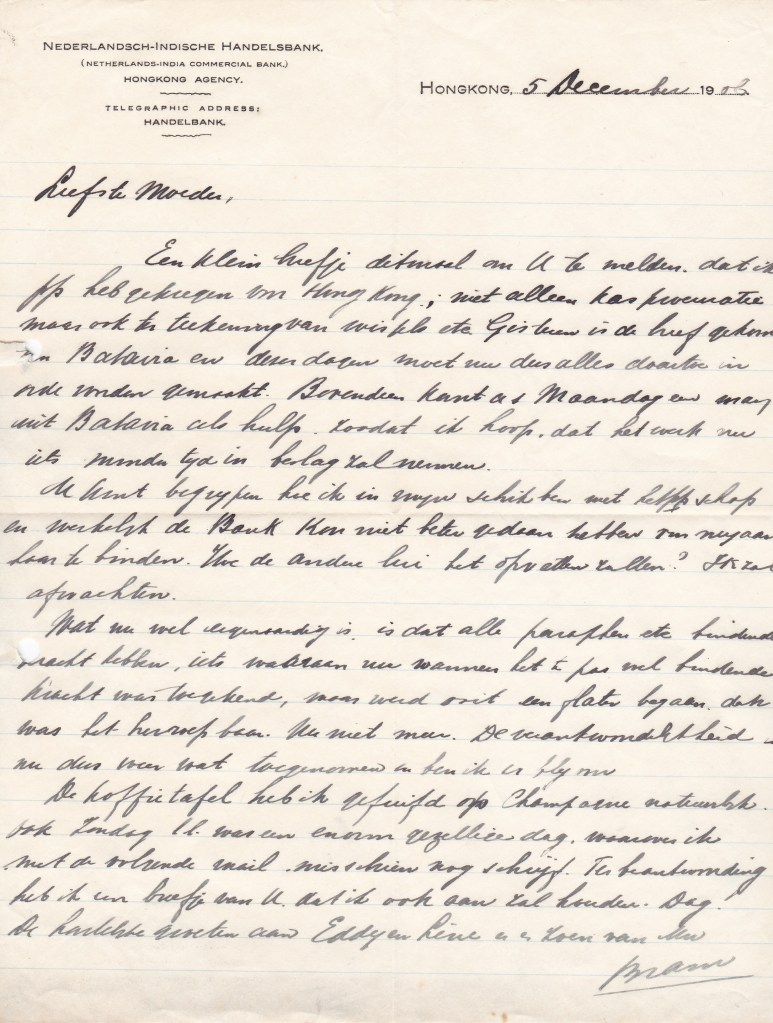 NEDERLANDSCH-INDISCHE HANDELSBANK,
(NETHERLANDS-INDIA COMMERCIAL BANK.)
HONGKONG AGENCY.
TELEGRAPHIC ADDRESS:
HANDELBANK.
HONGKONG, 5 December 1906.
Liefste Moeder,
Een klein briefje ditmaal om U te melden dat ik
pp heb gekregen voor HongKong; niet alleen kas procuratie
maar ook ter teekening van wissels etc Gisteren is de brief gekomen
van Batavia en dezer dagen moet nu dus alles daartoe in
orde worden gemaakt. Bovendien komt a s Maandag een man
uit Batavia als hulp, zoodat ik hoop, dat het werk nu
iets minder tyd in beslag zal nemen.
U kunt begrypen hoe ik in myn schik ben met het pp schap
en werkelyk de Bank kon niet beter gedaan hebben om my aan
haar te binden. Hoe de andere lui het opvatten zullen? Ik zal
afwachten.
Wat nu wel eigenaardig is, is dat alle paraphen etc bindende
kracht hebben, iets waaraan nu wanneer het te pas wel bindende
kracht was toegekend, maar werd ooit een flater begaan, dan
was het herroepbaar. Nu niet meer. De verantwoordelykheid
nu dus weer wat toegenomen en ben ik er bly om
De Koffietafel heb ik gefuifd op Champagne natuurlyk.
ook Zondag l.l. was een enorm gezellige dag, waarover ik
met de volgende mail misschien nog schryf. Ter beantwoording
heb ik een briefje van U. dat ik ook aan zal houden. Dag!
De hartelykste groeten aan Eddy en Line en zoen van Uw
Bram